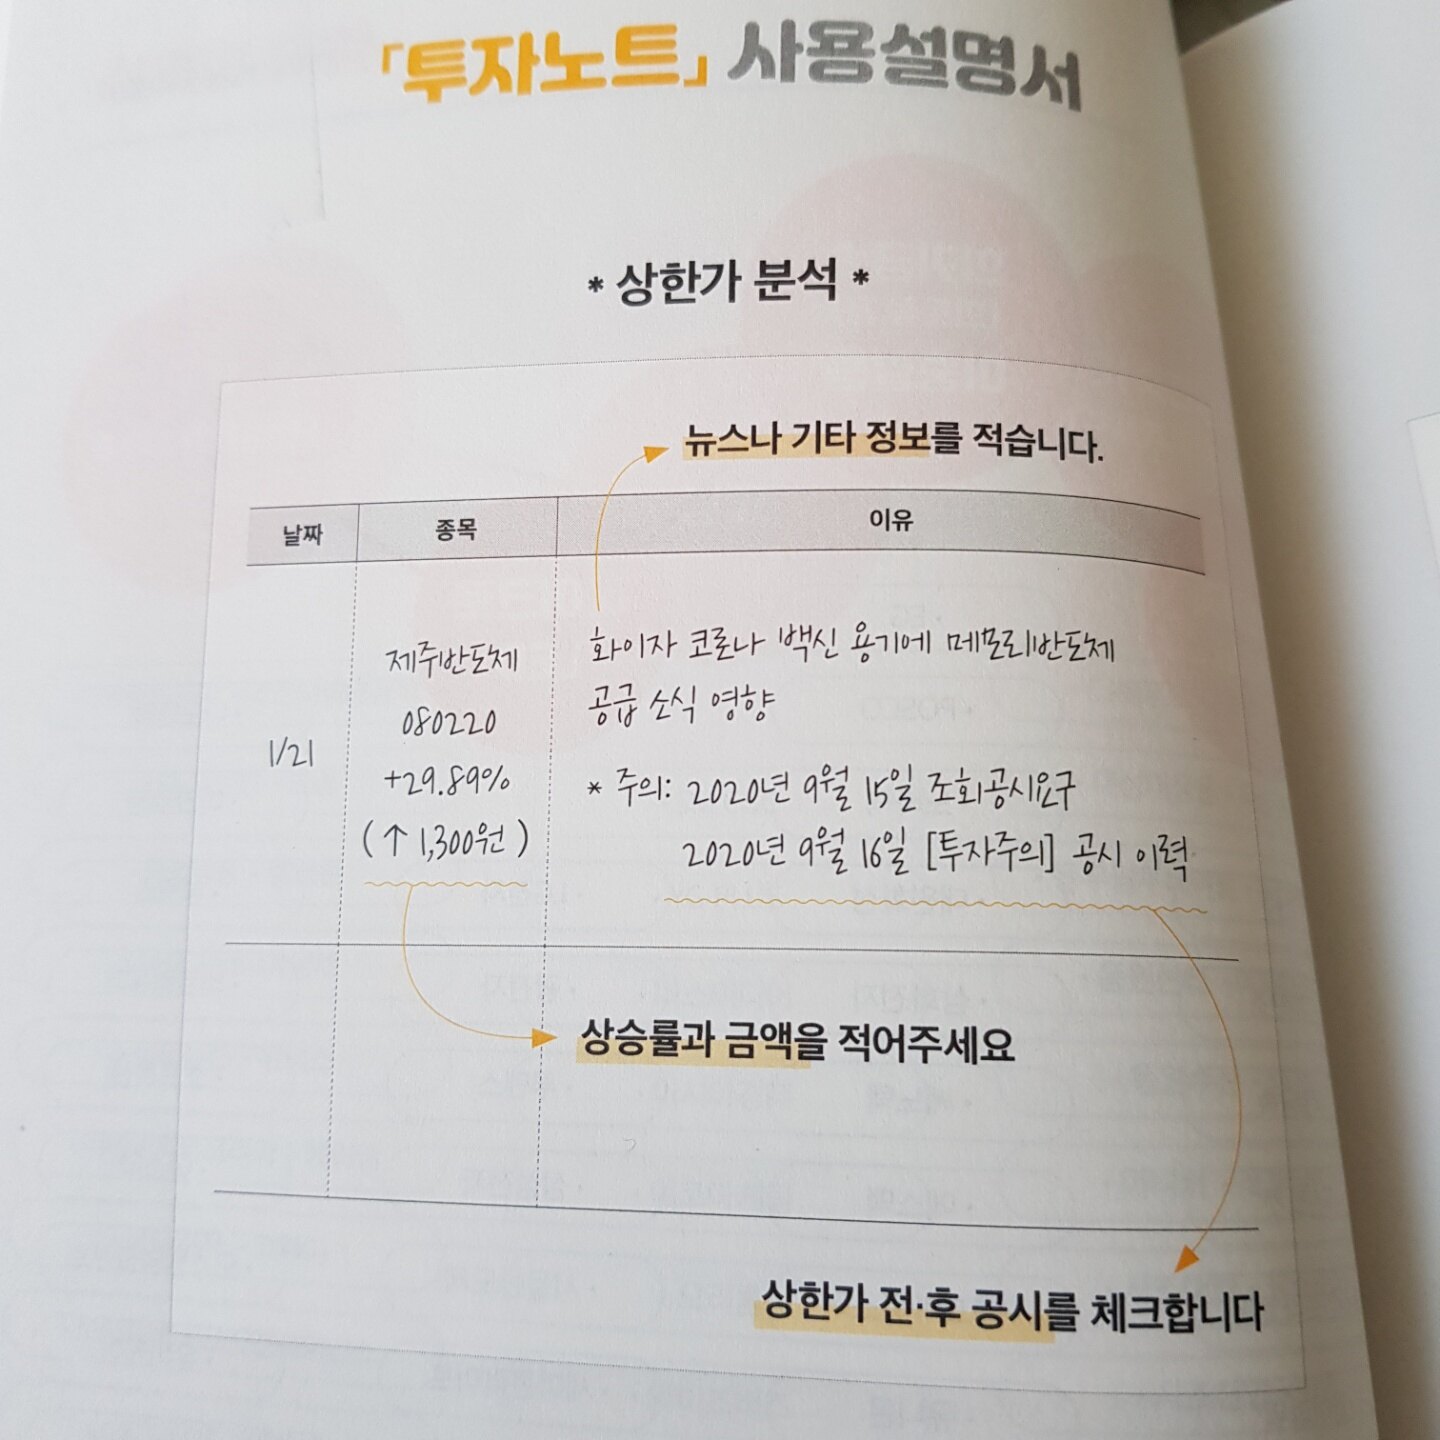 「투자노트」 사용설명서
* 상한가 분석 *
뉴스나 기타 정보를 적습니다.
날짜 종목 이유
1/21
제주반도체
080220
+29.89%
(↑1,300원)
화이자 코로나 백신 용기에 메모리반도체
공급 소식 영향
* 주의: 2020년 9월 15일 조회공시요구
2020년 9월 16일 [투자주의] 공시 이력
상승률과 금액을 적어주세요
상한가 전·후 공시를 체크합니다